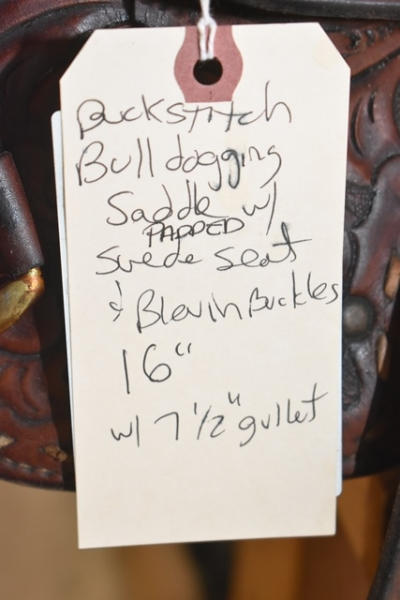 Buckstitch
Bulldogging
Saddle w/
PADDED
Suede Seat
& Blevin Buckles
16"
w/ 7 1/2" gullet